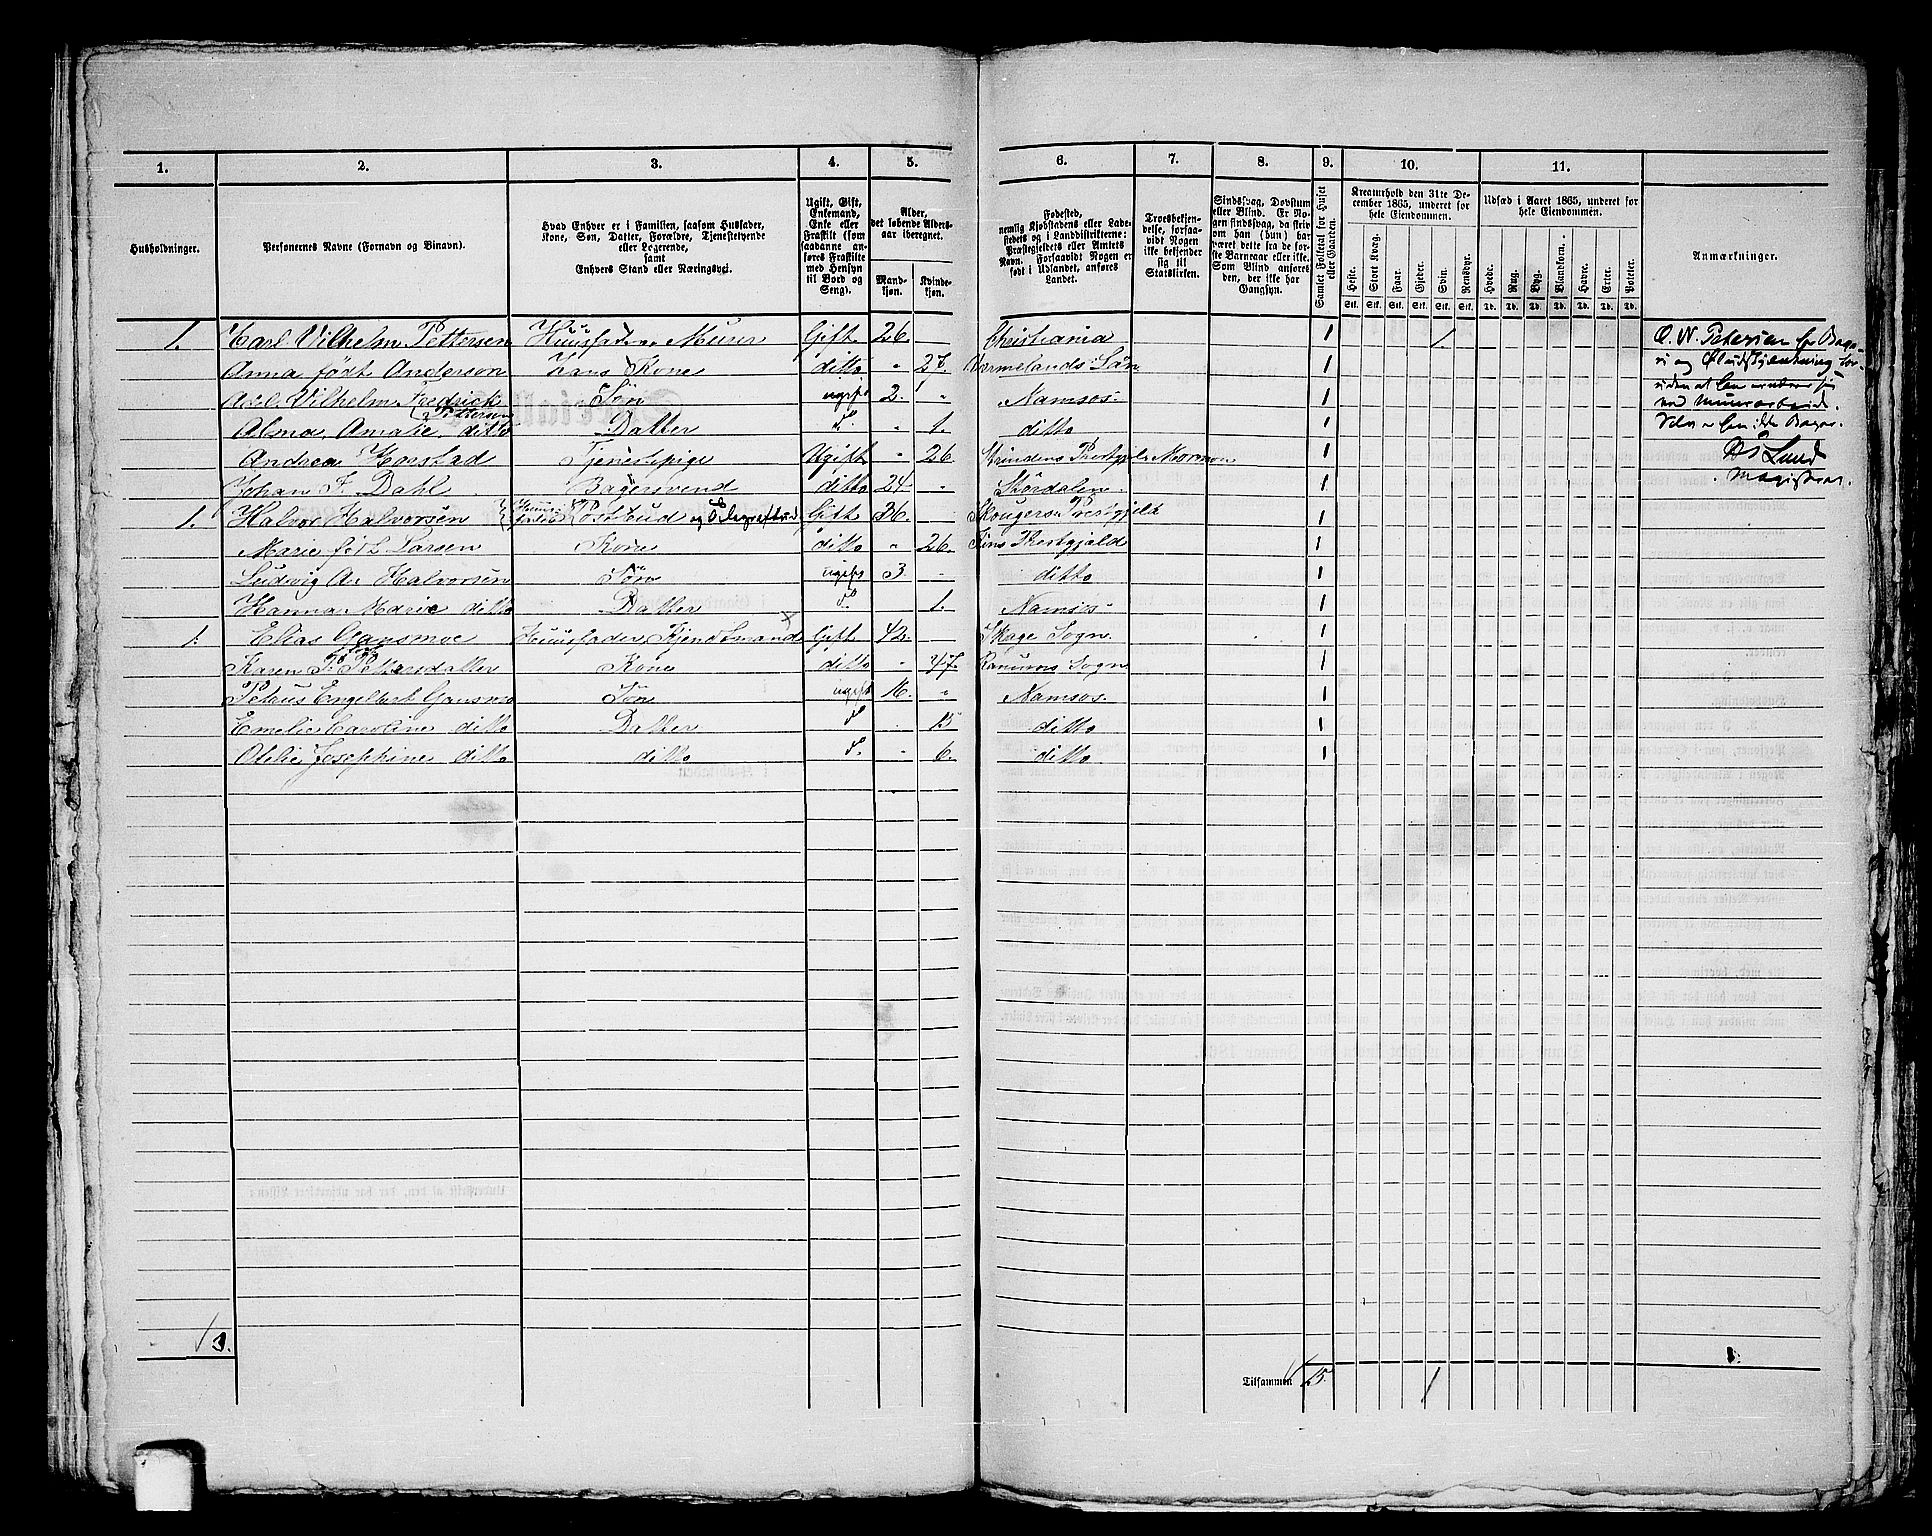 1. 2. 3. 4. 5. 6. 7. 8. 9. 10. 11.
Husholdninger.
Personernes Navne (Fornavn og Binavn).
Hvad Enhver er i Familien, saasom Husfader, Kone, Søn, Datter, Forældre, Tjenestetyende eller Logerende, samt Enhvers Stand eller Næringsvei.
Ugift, Gift, Enkemand, Enke eller Fraskilt (som saadanne anføres Fraskilte med Hensyn til Bord og Seng).
Alder, det løbende Aldersaar iberegnet.
Mandkjøn. Kvindekjøn.
Fødested, nemlig Kjøbstadens eller Ladestedets og i Landdistrikterne: Præstegjeldets eller Amtets Navn. Forsaavidt Nogen er født i Udlandet, anføres Landet.
Troesbekjendelse, forsaavidt Nogen ikke bekjender sig til Statskirken.
Sindssvag, Døvstum eller Blind. Er Nogen sindssvag, da skrives om han (hun) har været dette fra de første Barneaar eller ikke. Som Blind anføres den, der ikke har Gangsyn.
Samlet Folketal for Huset eller Gaarden.
Kreaturhold den 31te December 1865, underet for hele Eiendommen.
Heste. Stort Kvæg. Faar. Gjeder. Svin. Rensdyr.
Stk. Stk. Stk. Stk. Stk. Stk.
Udsæd i Aaret 1865, underet for hele Eiendommen.
Hvede. Rug. Byg. Blandkorn. Havre. Erter. Poteter.
Td. Td. Td. Td. Td. Td. Td.
Anmærkninger.
1. Carl Vilhelm Pettersen Huusfader Murer Gift 26. Christiania 1 1
Anna født Anderson Hans Kone ditto " 27. Vermelands Län 1
Vilhelm Fredrick Pettersen Søn ugift 2. " Namsos. 1
Alma Amalie ditto Datter do " 1. ditto 1
Andrea Horstad Tjenestepige Ugift " 26 Strindens Prestgjeld Mormon 1
Johan F. Dahl Bagersvend ditto 24 " Stördalen. 1
1. Halvor Halvorsen Huusfader Postbud og Telegrafbud Gift 36. Skougers Prestgjeld 1
Marie født Larsen Kone ditto " 26. Prestgjeld 1
Ludvig An Halvorsen Søn ugift 3 ditto 1
Hanna Marie ditto Datter do 1. Namsos 1
1. Elias Gansmoe Huusfader, Gift 42. Skage Sogn 1
Karen P. født Pettersdatter Kone ditto " 47. Ranums Sogn 1
Petrus Engelbert Gansmo Søn ugift 16. " Namsos. 1
Emelie Caroline ditto Datter do 15 ditto 1
Otelie Josephine ditto ditto do " 6. ditto. 1
Lund
Magistrat.
3.
Tilsammen 15. 1